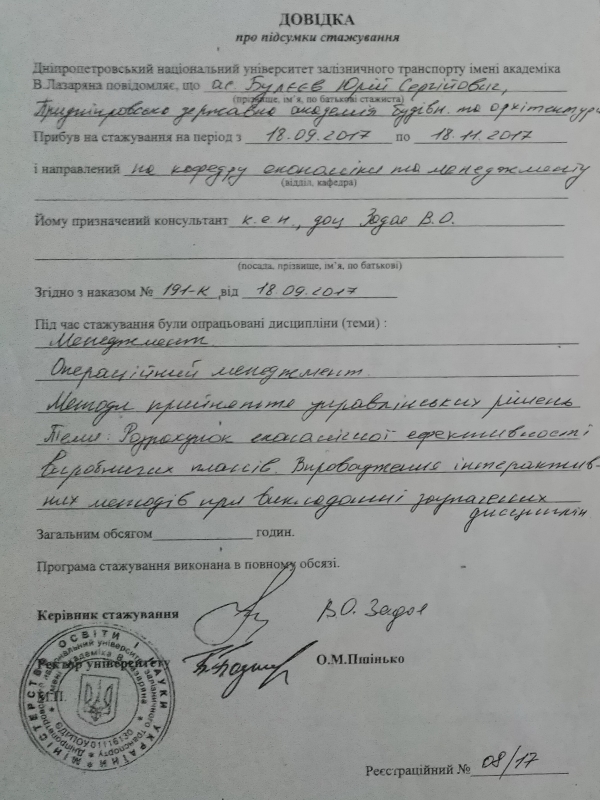 ДОВІДКА
про підсумки стажування
Дніпропетровський національний університет залізничного транспорту імені академіка
В.Лазаряна повідомляє, що ас. Булєєв Юрій Сергійович,
(прізвище, ім'я, по батькові стажиста)
Придніпровська державна академія будівн. та архітектури
Прибув на стажування на період з 18.09.2017 по 18.11.2017
і направлений на кафедру економіки та менеджменту
(відділ, кафедра)
Йому призначений консультант к.е.н., доц Задоя В.О.
(посада, прізвище, ім'я, по батькові)
Згідно з наказом № 191-к від 18.09.2017
Під час стажування були опрацьовані дисципліни (теми) :
Менеджмент
Операційний менеджмент.
Методи прийняття управлінських рішень
Теми: Розрахунок економічної ефективності
виробничих планів. Впровадження інтерактив-
них методів при викладанні зазначених
дисциплін
Загальним обсягом годин.
Програма стажування виконана в повному обсязі.
Керівник стажування В.О. Задоя
Ректор університету О.М.Пшінько
М.П.
МІНІСТЕРСТВО ОСВІТИ І НАУКИ УКРАЇНИ
Дніпропетровський національний університет залізничного транспорту імені академіка В. Лазаряна
ЄДРПОУ 01116130
Реєстраційний № 08/17